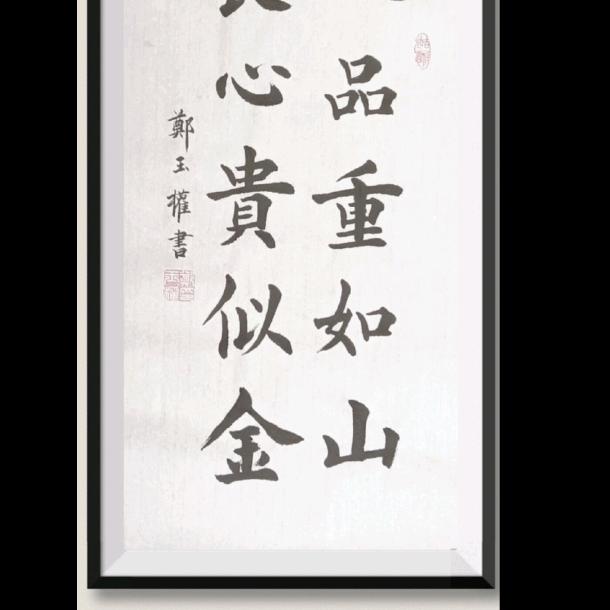 品重如山
心貴似金
鄭玉權書